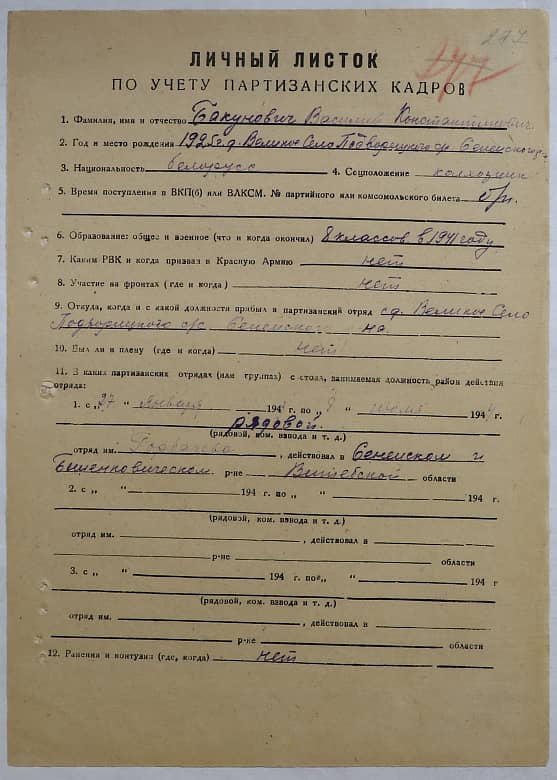 277
ЛИЧНЫЙ ЛИСТОК
ПО УЧЕТУ ПАРТИЗАНСКИХ КАДРОВ
1. Фамилия, имя и отчество Бакунович Василий Константинович
2. Год и место рождения 1925г д. Великое Село Подворицкого с/с. Сененского р-
3. Национальность белорусс 4. Соцположение колхозник
5. Время поступления в ВКП(б) или ВЛКСМ. № партийного или комсомольского билета б/п.
6. Образование: общее и военное (что и когда окончил) 8 классов. в 1941 году.
7. Каким РВК и когда призван в Красную Армию нет
8. Участие на фронтах (где и когда) нет.
9. Откуда, когда и с какой должности прибыл в партизанский отряд с д. Великое Село
Подворицкого с/с. Сененского на.
10. Был ли в плену (где и когда) нет
11. В каких партизанских отрядах (или группах) состоял, занимаемая должность район действия
отряда:
1. с „27 “ Января 194 г. по „ “ июля 194 г.
рядовой.
(рядовой, ком. взвода и т. д.)
отряд им. , действовал в Сененском и
Бешенковическом р-не Витебской области
2. с „ “ 194 г. по „ “ 194 г.
(рядовой, ком. взвода и т. д.)
отряд им. , действовал в
р-не области
3. с „ “ 194 г. по „ “ 194 г
(рядовой, ком. взвода и т. д.)
отряд им. , действовал в
р-не области
12. Ранения и контузия (где, когда) нет